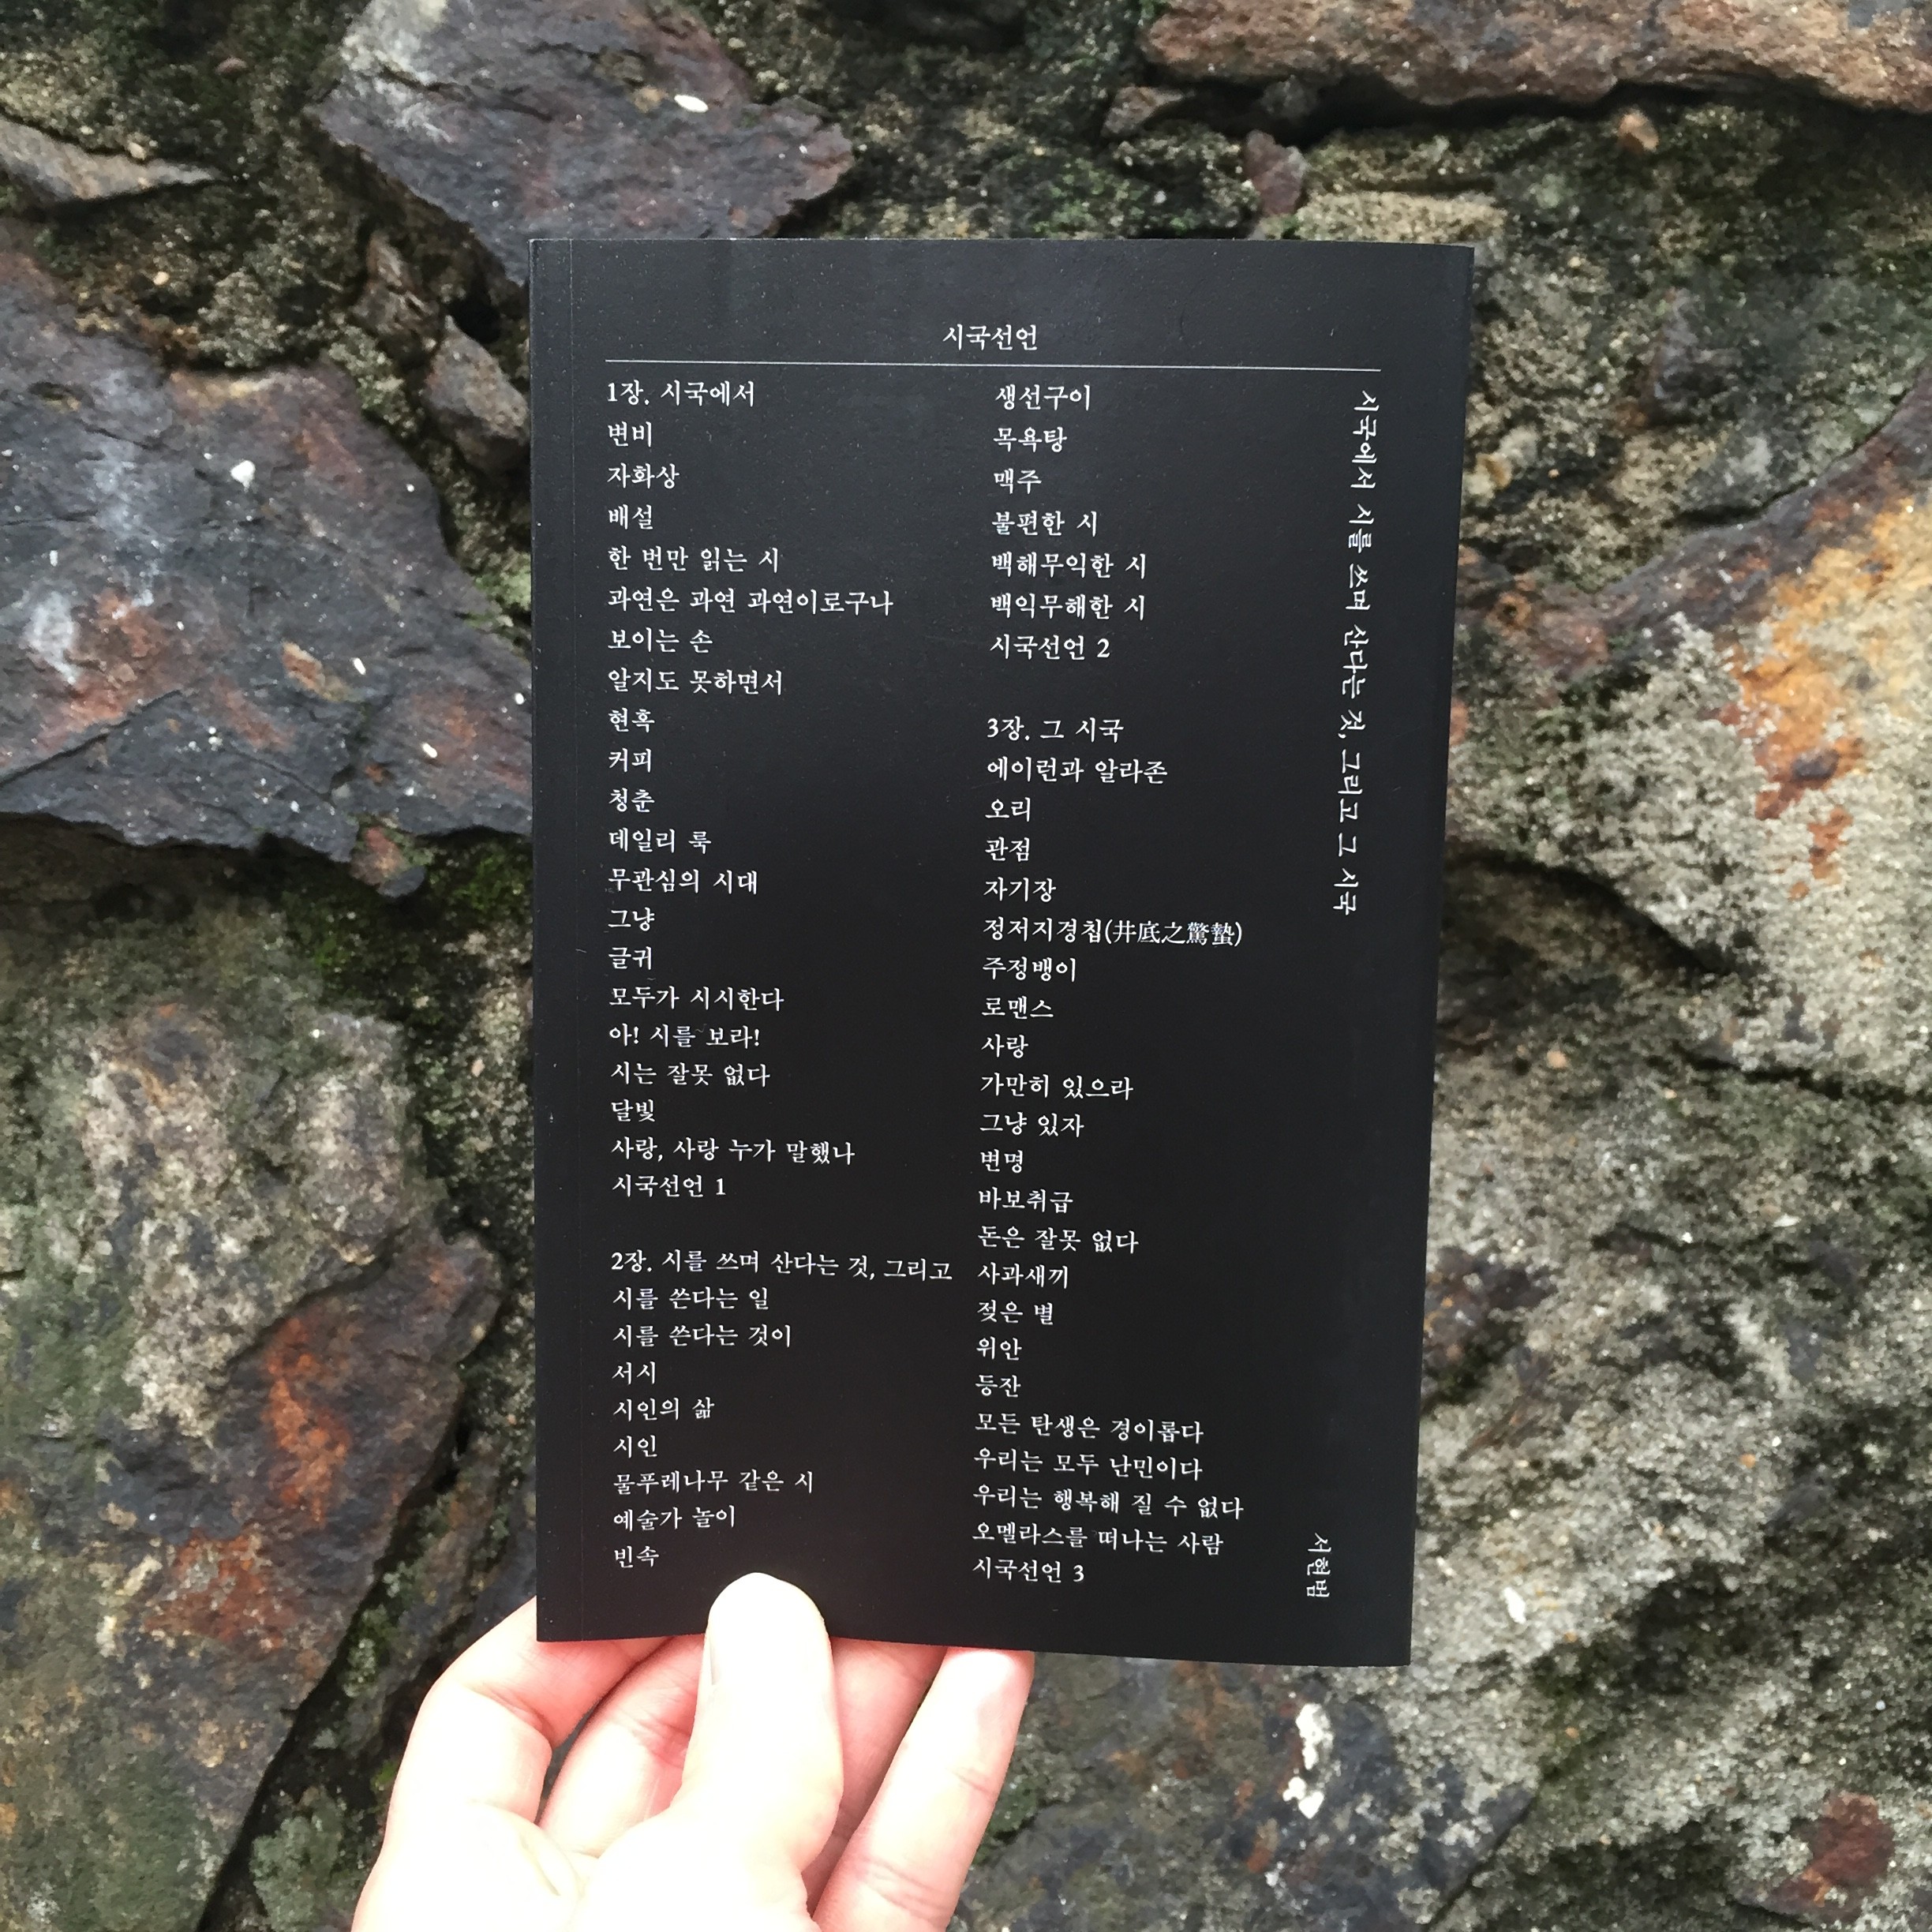 시국선언
1장. 시국에서
변비
자화상
배설
한 번만 읽는 시
과연은 과연 과연이로구나
보이는 손
알지도 못하면서
현혹
커피
청춘
데일리 룩
무관심의 시대
그냥
글귀
모두가 시시한다
아! 시를 보라!
시는 잘못 없다
달빛
사랑, 사랑 누가 말했나
시국선언 1
2장. 시를 쓰며 산다는 것, 그리고
시를 쓴다는 일
시를 쓴다는 것이
서시
시인의 삶
시인
물푸레나무 같은 시
예술가 놀이
빈속
생선구이
목욕탕
맥주
불편한 시
백해무익한 시
백익무해한 시
시국선언 2
3장. 그 시국
에이런과 알라존
오리
관점
자기장
정저지경칩(井底之驚蟄)
주정뱅이
로맨스
사랑
가만히 있으라
그냥 있자
변명
바보취급
돈은 잘못 없다
사과새끼
젖은 별
위안
등잔
모든 탄생은 경이롭다
우리는 모두 난민이다
우리는 행복해 질 수 없다
오멜라스를 떠나는 사람
시국선언 3
시국에서 시를 쓰며 산다는 것, 그리고 그 시국
서현범